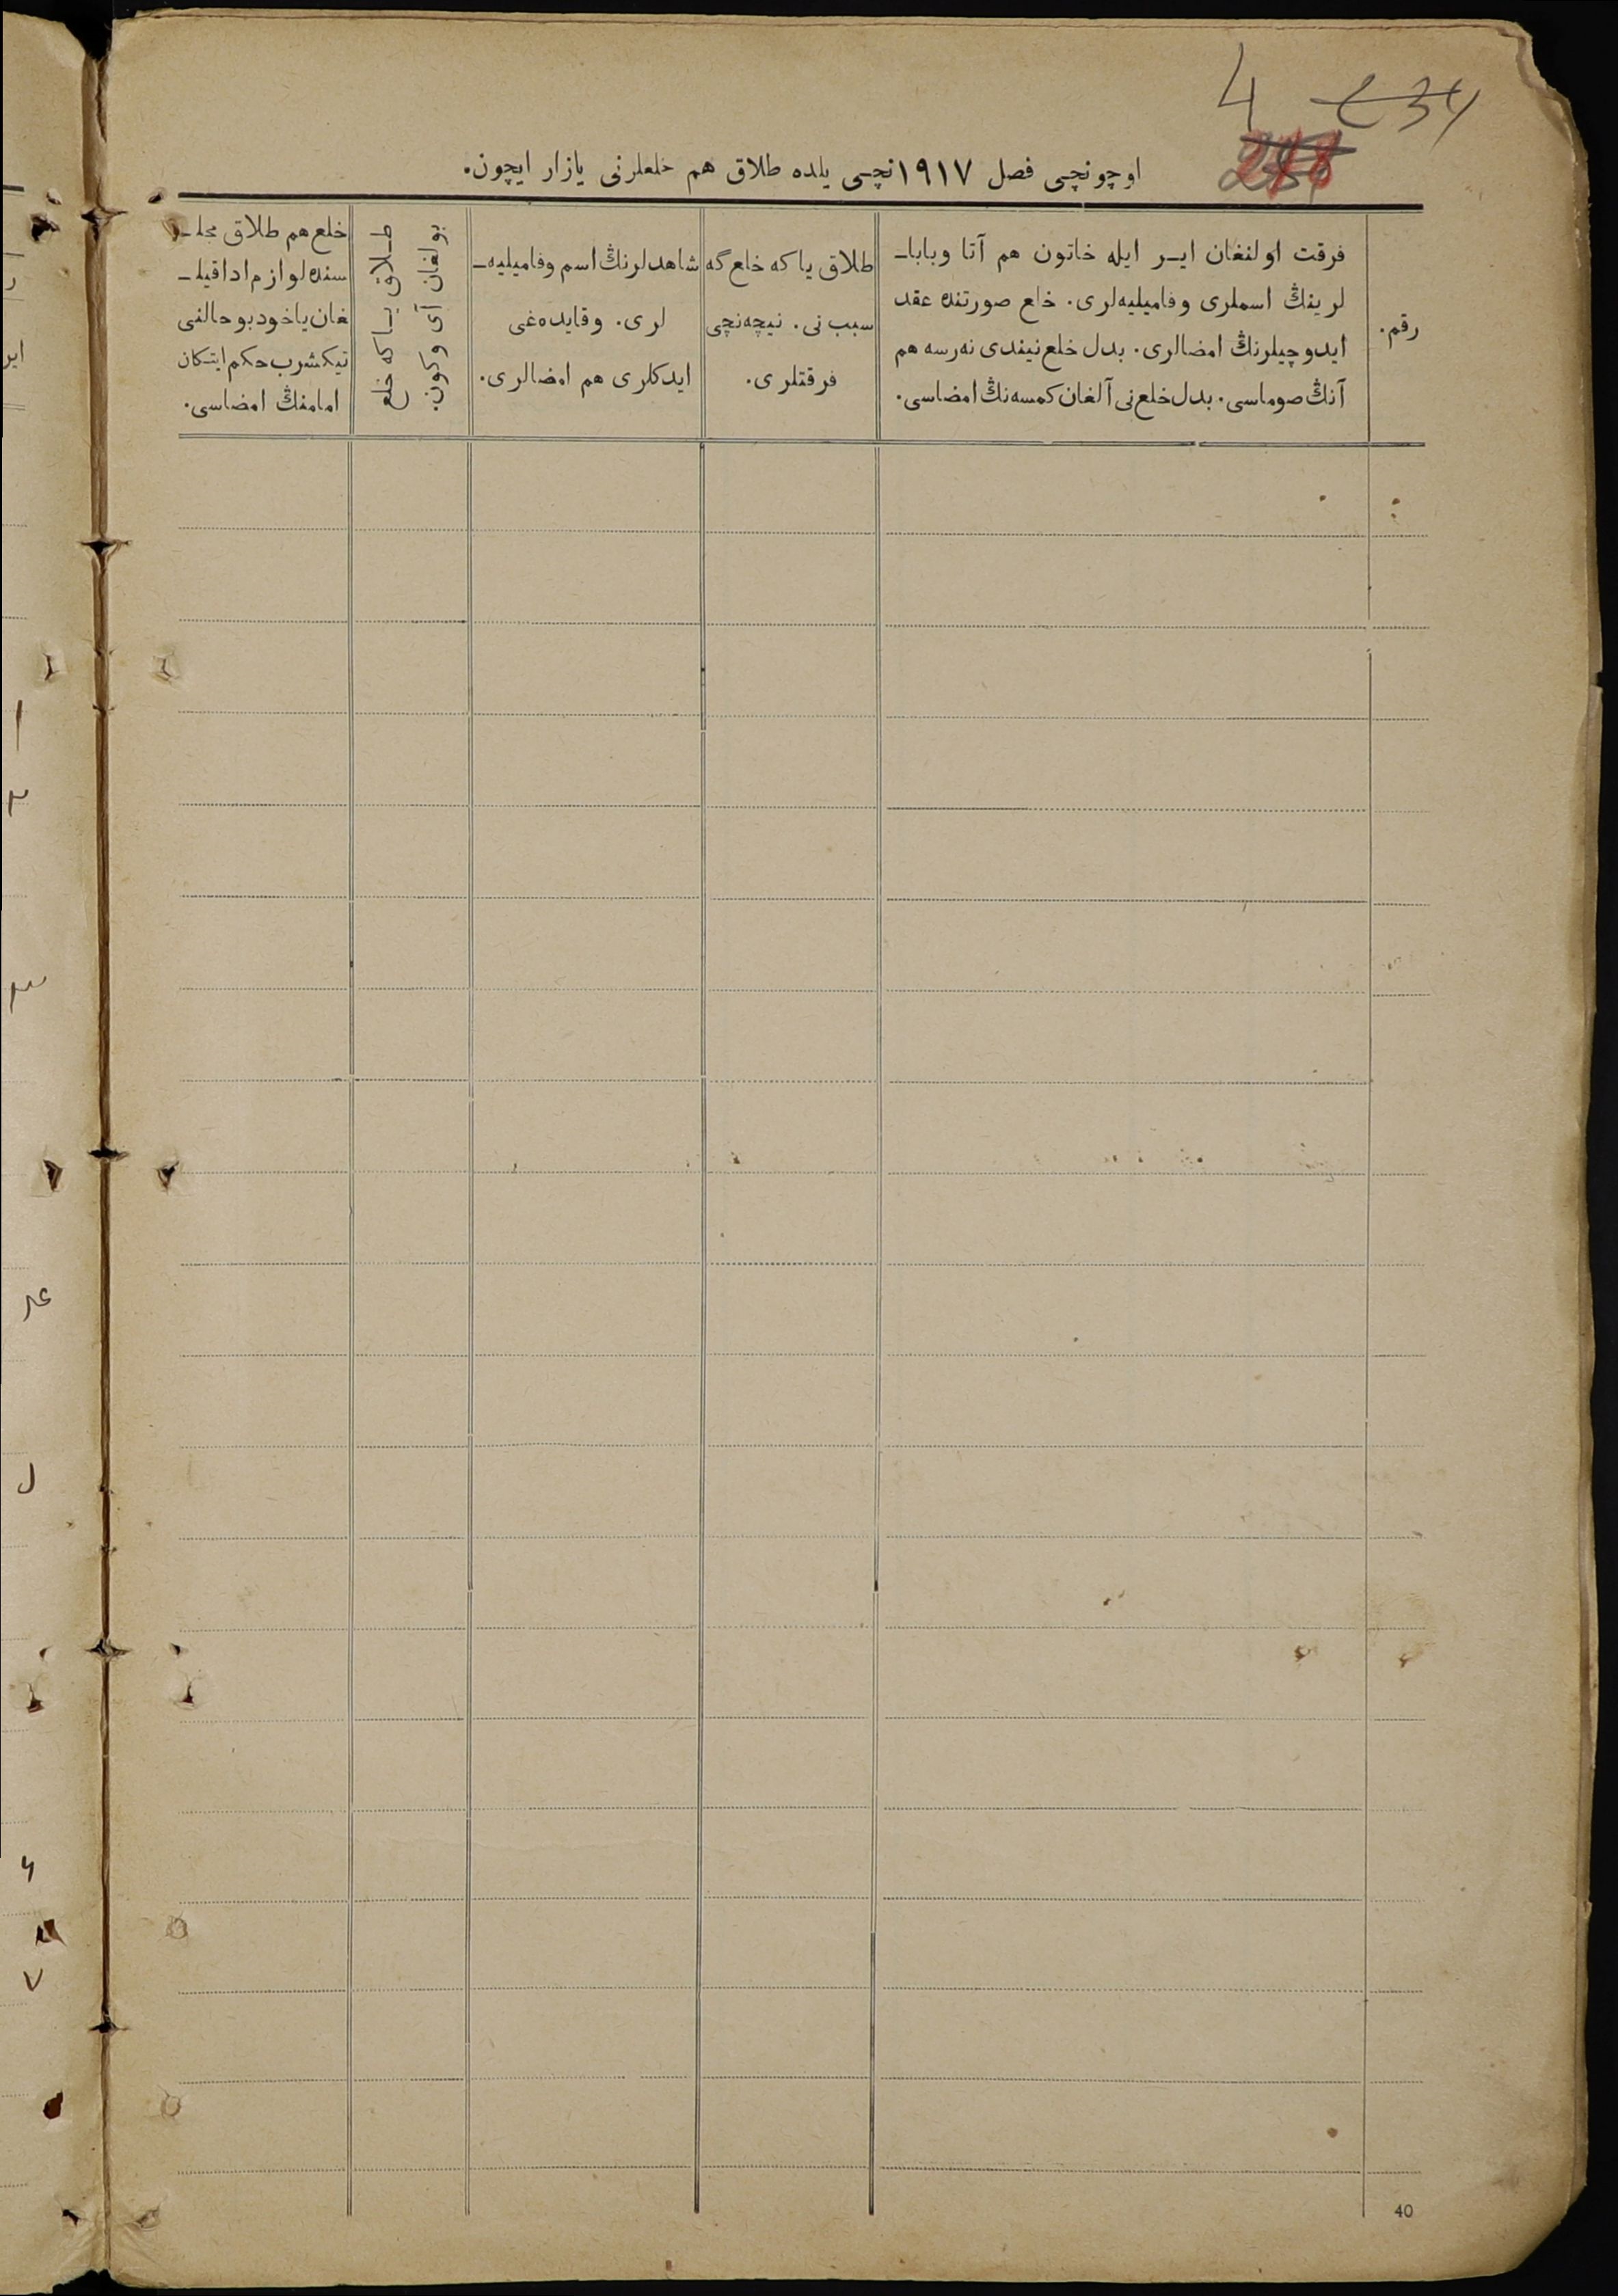 4
248
اوچونچی فصل ١٩١٧نچی يلده طلاق هم خلعلرنی يازار ايچون.
رقم.
فرقت اولنغان ايـر ايله خاتون هم آتا وبابا ـ
لرينڭ اسملری وفاميليه‌لری. خلع صورتنده عقد
ايدوچيلرنڭ امضالری. بدل خلع نيندی نه‌رسه هم
آنڭ صوماسی. بدل خلع نی آلغان کمسه‌نڭ امضاسی.
طلاق ياکه خلع گه
سبب نی. نيچه‌نچی
فرقتلری.
شاهدلرنڭ اسم وفاميليه ـ
لری. وقايده‌غی
ايدکلری هم امضالری.
طـلاق يـاکه خلع
بولغان آی وکون.
خلع هم طلاق مجلـ
سنده لوازم ادا قيلـ
غان ياخود بو حالنی
تيکشرب حکم ايتـکان
امامنڭ امضاسی.
40